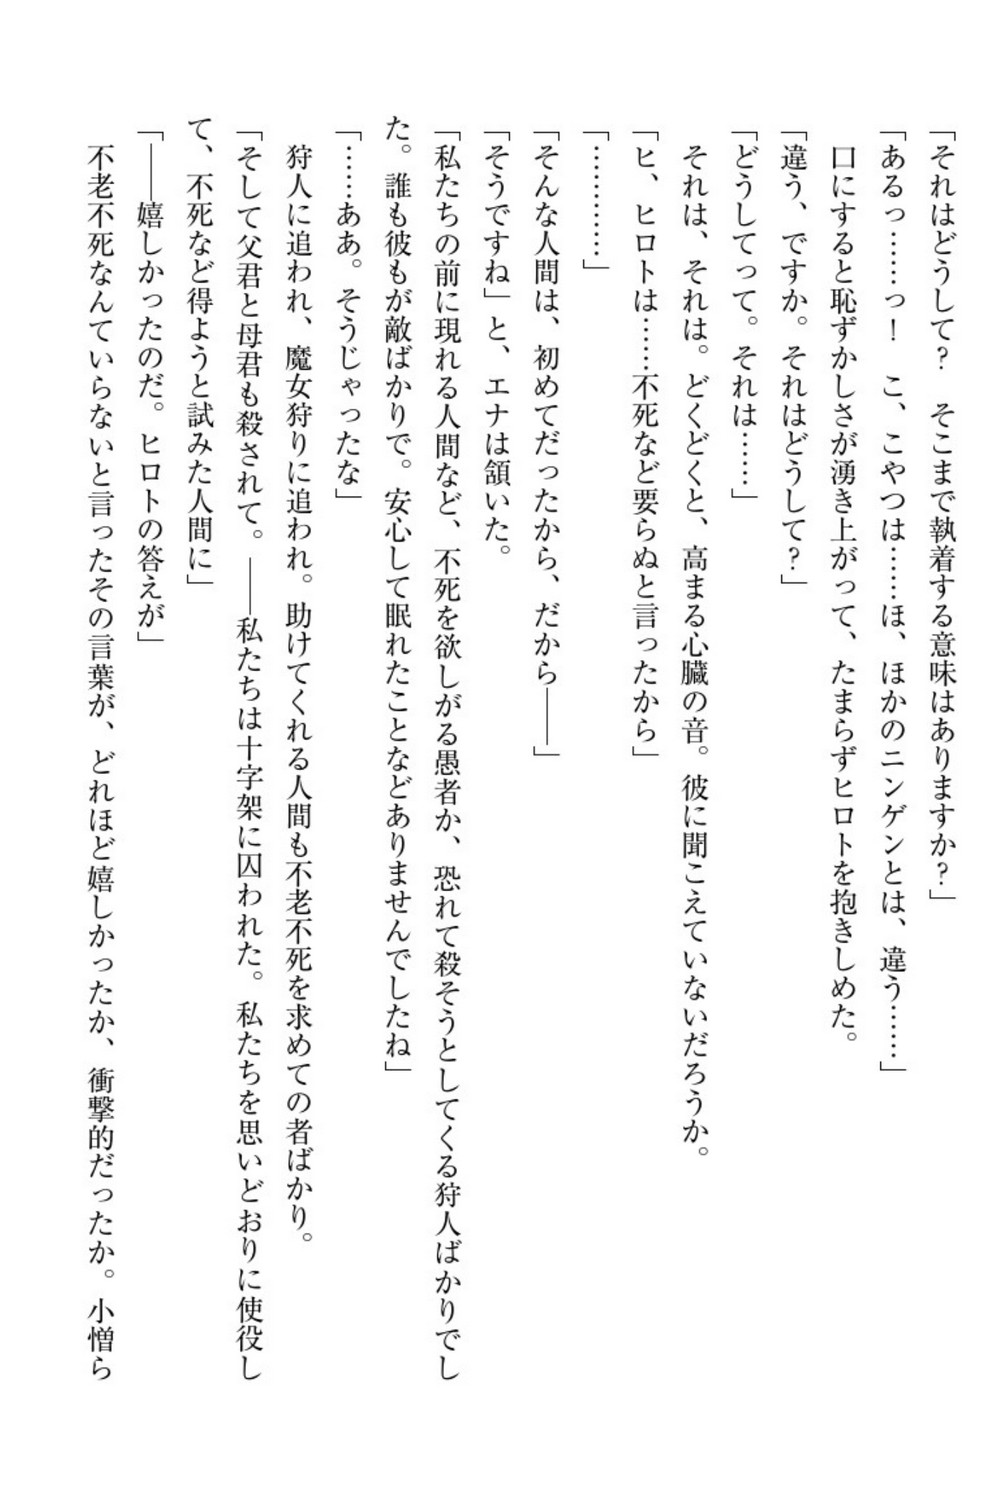 「それはどうして？　そこまで執着する意味はありますか？」
「あるっ……っ！　こ、こやつは……ほ、ほかのニンゲンとは、違う……」
口にすると恥ずかしさが湧き上がって、たまらずヒロトを抱きしめた。
「違う、ですか。それはどうして？」
「どうしてって。それは……」
それは、それは。どくどくと、高まる心臓の音。彼に聞こえていないだろうか。
「ヒ、ヒロトは……不死など要らぬと言ったから」
「…………」
「そんな人間は、初めてだったから、だから――」
「そうですね」と、エナは頷いた。
「私たちの前に現れる人間など、不死を欲しがる愚者か、恐れて殺そうとしてくる狩人ばかりでし
た。誰も彼もが敵ばかりで。安心して眠れたことなどありませんでしたね」
「……ああ。そうじゃったな」
狩人に追われ、魔女狩りに追われ。助けてくれる人間も不老不死を求めての者ばかり。
「そして父君と母君も殺されて。――私たちは十字架に囚われた。私たちを思いどおりに使役し
て、不死など得ようと試みた人間に」
「――嬉しかったのだ。ヒロトの答えが」
不老不死なんていらないと言ったその言葉が、どれほど嬉しかったか、衝撃的だったか。小憎ら